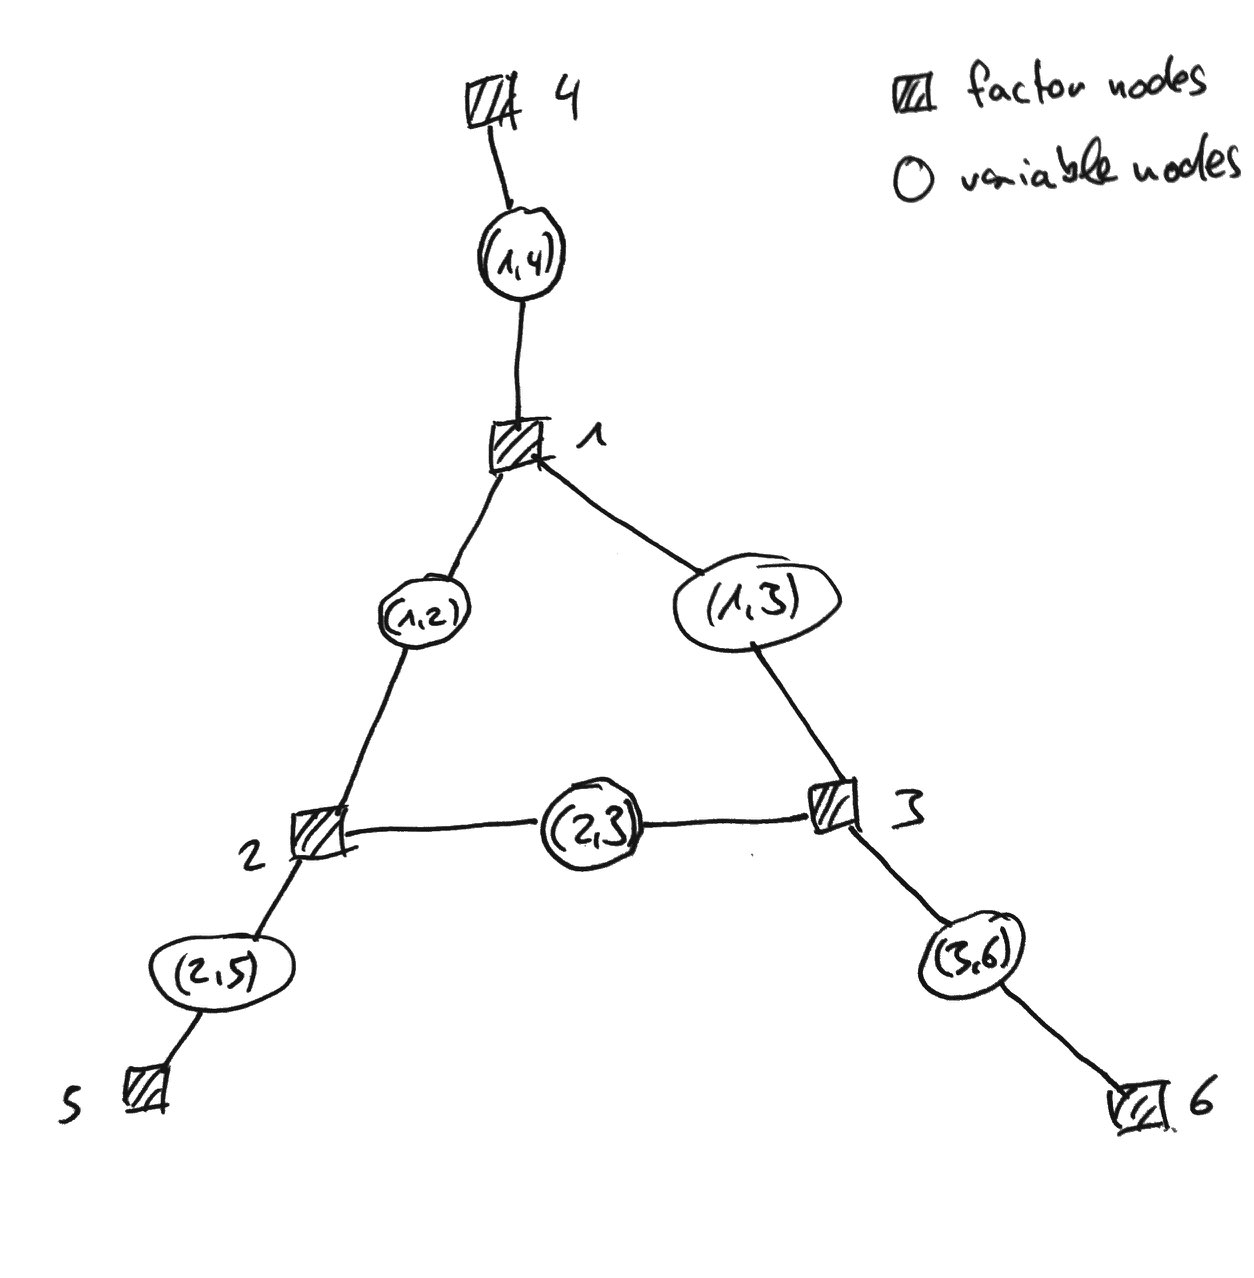 4
factor nodes
variable nodes
(1,4)
1
(1,2)
(1,3)
2
(2,3)
3
(2,5)
(3,6)
5
6